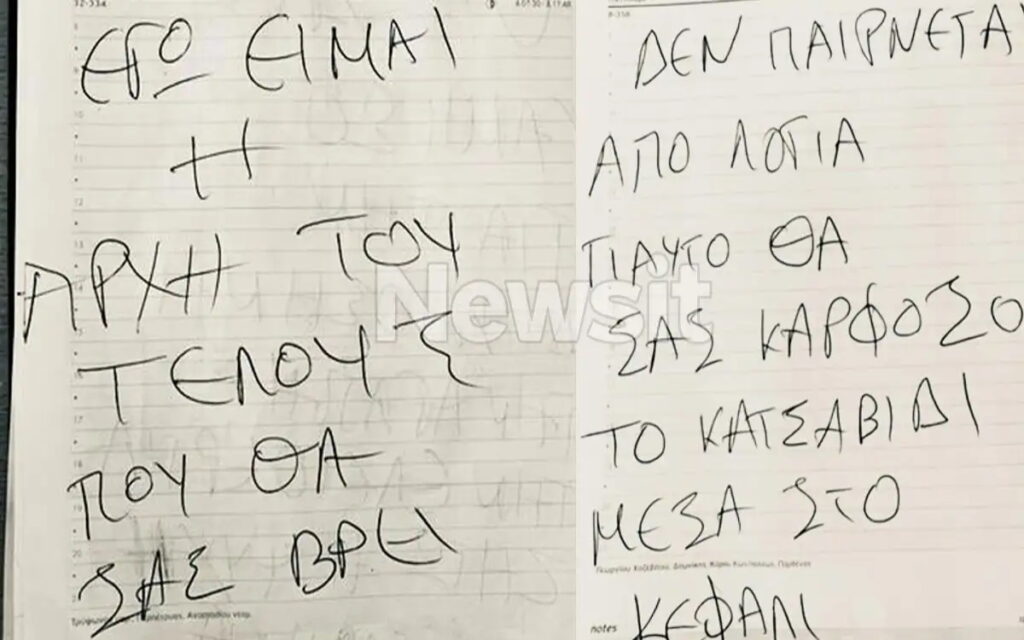 32-334
ΕΓΩ ΕΙΜΑΙ
Η
ΑΡΧΗ ΤΟΥ
ΤΕΛΟΥΣ
ΠΟΥ ΘΑ
ΣΑΣ ΒΡΕΙ
ΔΕΝ ΠΑΙΡΝΕΤΑΙ
ΑΠΟ ΛΟΓΙΑ
ΓΙΑΥΤΟ ΘΑ
ΣΑΣ ΚΑΡΦΟΣΟ
ΤΟ ΚΑΤΣΑΒΙΔΙ
ΜΕΣΑ ΣΤΟ
notes ΚΕΦΑΛΙ
Newsit